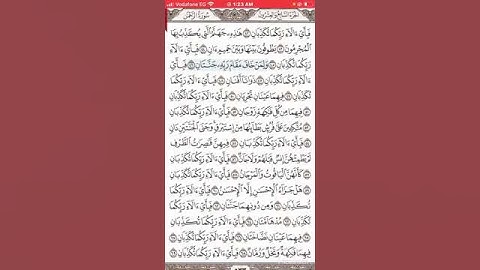 Vodafone EG
1:23 AM
الجزء السابع والعشرون
سورة الرحمن
فَبِأَيِّ ءَالَآءِ رَبِّكُمَا تُكَذِّبَانِ ٤٢ هَٰذِهِۦ جَهَنَّمُ ٱلَّتِى يُكَذِّبُ بِهَا
ٱلْمُجْرِمُونَ ٤٣ يَطُوفُونَ بَيْنَهَا وَبَيْنَ حَمِيمٍ ءَانٍ ٤٤ فَبِأَيِّ ءَالَآءِ
رَبِّكُمَا تُكَذِّبَانِ ٤٥ وَلِمَنْ خَافَ مَقَامَ رَبِّهِۦ جَنَّتَانِ ٤٦ فَبِأَيِّ ءَالَآءِ
رَبِّكُمَا تُكَذِّبَانِ ٤٧ ذَوَاتَآ أَفْنَانٍ ٤٨ فَبِأَيِّ ءَالَآءِ رَبِّكُمَا تُكَذِّبَانِ
٤٩ فِيهِمَا عَيْنَانِ تَجْرِيَانِ ٥٠ فَبِأَيِّ ءَالَآءِ رَبِّكُمَا تُكَذِّبَانِ
٥١ فِيهِمَا مِن كُلِّ فَٰكِهَةٍ زَوْجَانِ ٥٢ فَبِأَيِّ ءَالَآءِ رَبِّكُمَا تُكَذِّبَانِ
٥٣ مُتَّكِـِٔينَ عَلَىٰ فُرُشٍۭ بَطَآئِنُهَا مِنْ إِسْتَبْرَقٍ وَجَنَى ٱلْجَنَّتَيْنِ دَانٍ
٥٤ فَبِأَيِّ ءَالَآءِ رَبِّكُمَا تُكَذِّبَانِ ٥٥ فِيهِنَّ قَٰصِرَٰتُ ٱلطَّرْفِ
لَمْ يَطْمِثْهُنَّ إِنسٌ قَبْلَهُمْ وَلَا جَآنٌّ ٥٦ فَبِأَيِّ ءَالَآءِ رَبِّكُمَا تُكَذِّبَانِ
٥٧ كَأَنَّهُنَّ ٱلْيَاقُوتُ وَٱلْمَرْجَانُ ٥٨ فَبِأَيِّ ءَالَآءِ رَبِّكُمَا تُكَذِّبَانِ
٥٩ هَلْ جَزَآءُ ٱلْإِحْسَٰنِ إِلَّا ٱلْإِحْسَٰنُ ٦٠ فَبِأَيِّ ءَالَآءِ رَبِّكُمَا
تُكَذِّبَانِ ٦١ وَمِن دُونِهِمَا جَنَّتَانِ ٦٢ فَبِأَيِّ ءَالَآءِ رَبِّكُمَا
تُكَذِّبَانِ ٦٣ مُدْهَآمَّتَانِ ٦٤ فَبِأَيِّ ءَالَآءِ رَبِّكُمَا تُكَذِّبَانِ
٦٥ فِيهِمَا عَيْنَانِ نَضَّاخَتَانِ ٦٦ فَبِأَيِّ ءَالَآءِ رَبِّكُمَا تُكَذِّبَانِ ٦٧
فِيهِمَا فَٰكِهَةٌ وَنَخْلٌ وَرُمَّانٌ ٦٨ فَبِأَيِّ ءَالَآءِ رَبِّكُمَا تُكَذِّبَانِ ٦٩